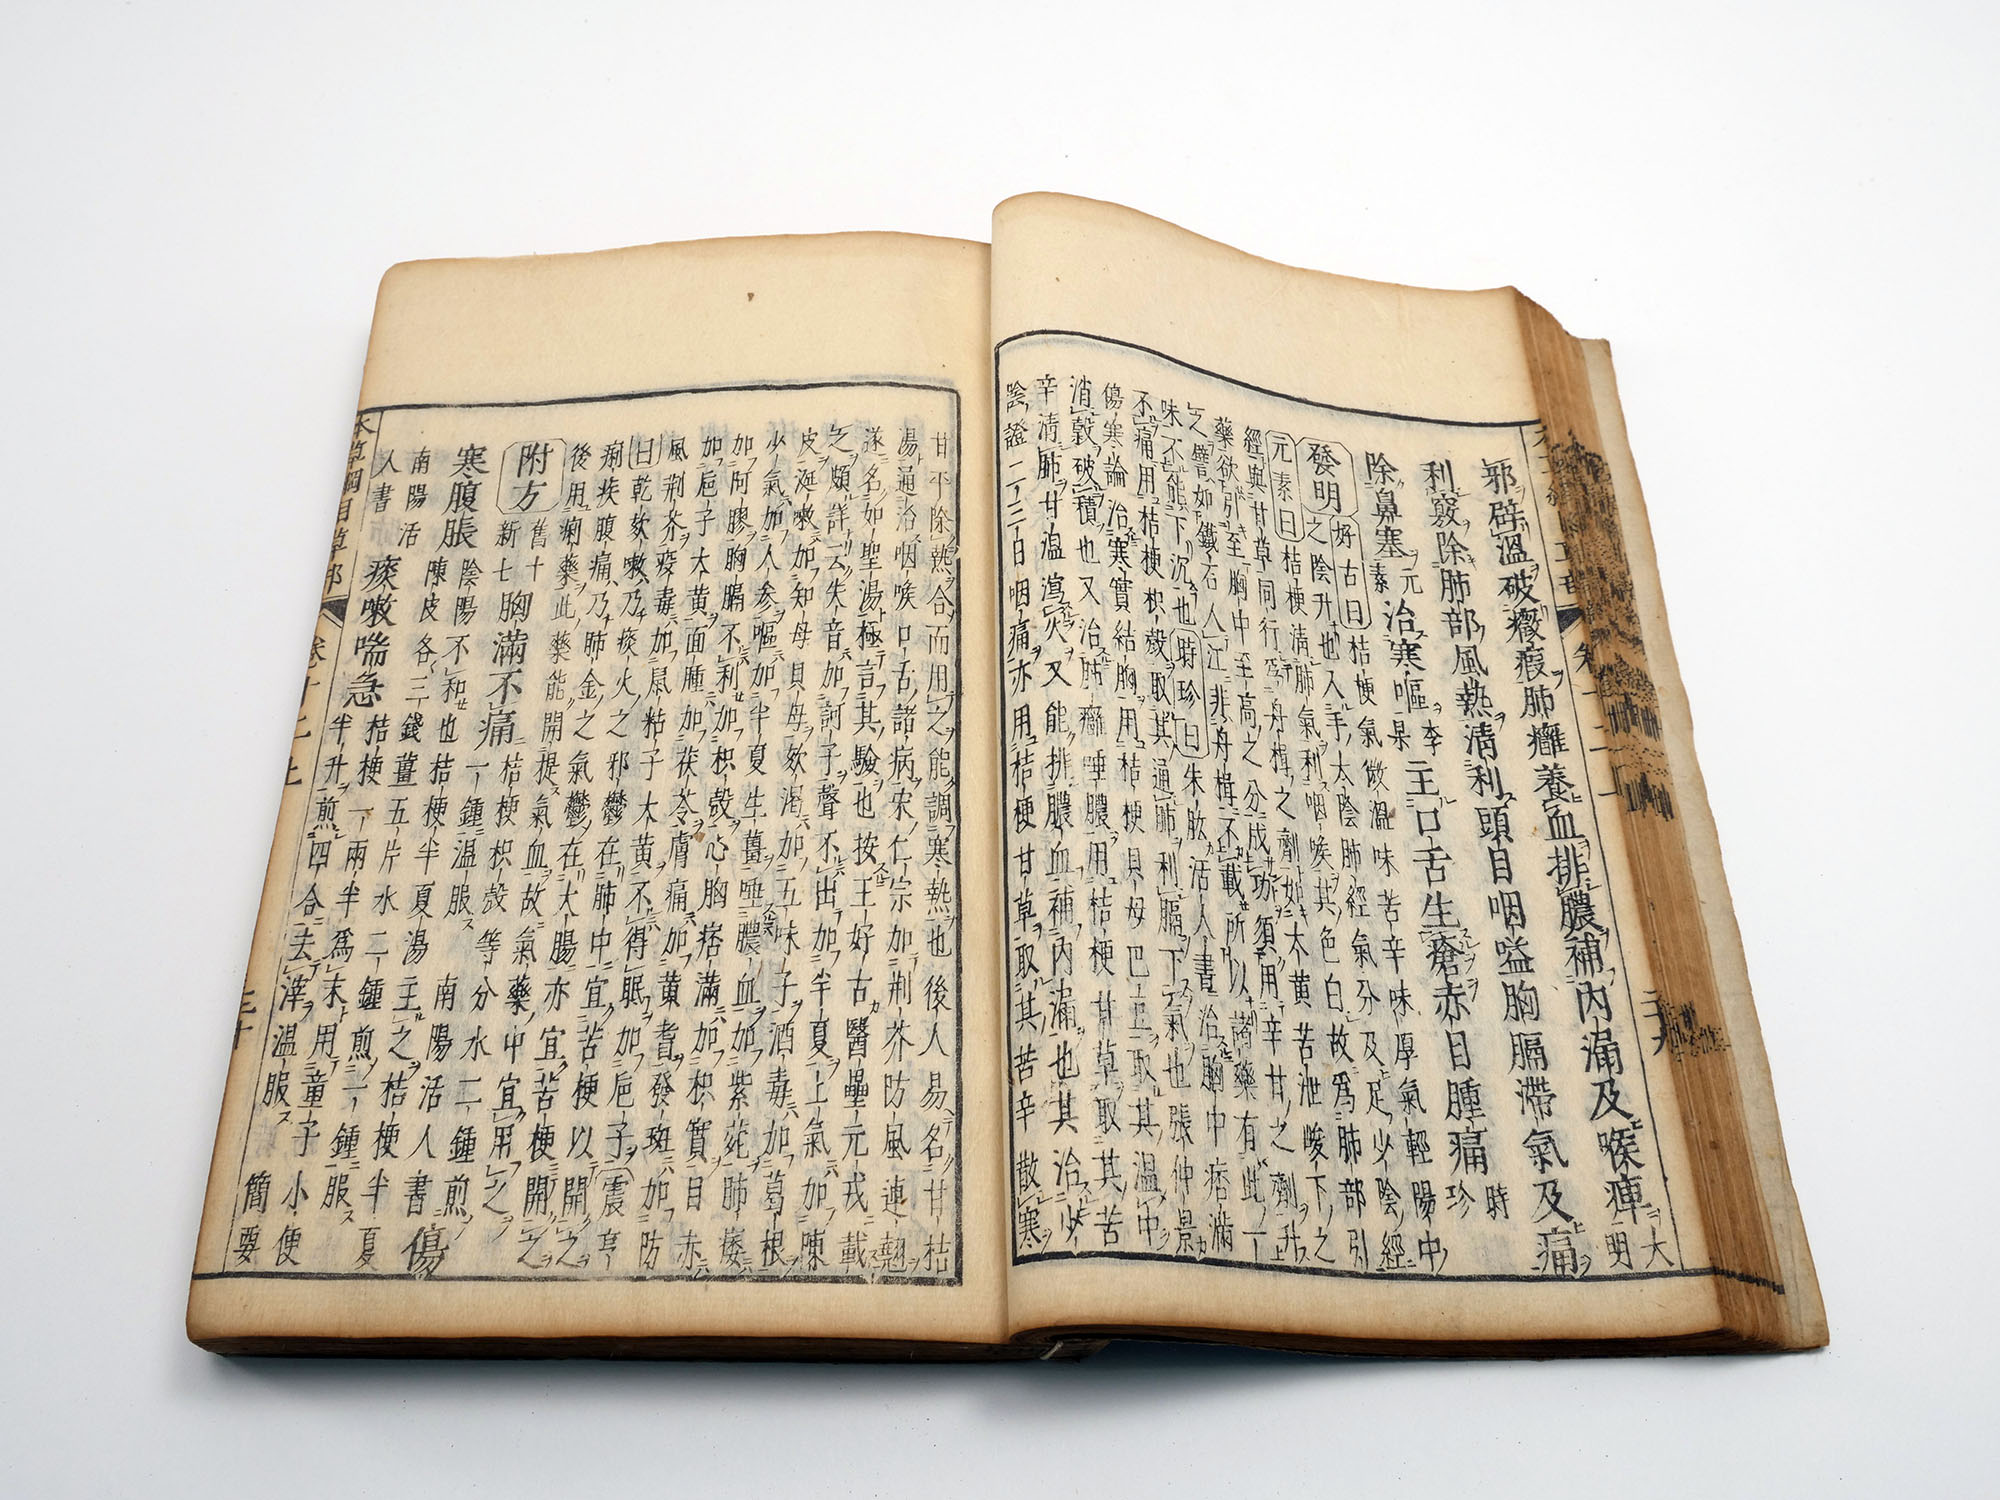 邪辟溫破癥瘕肺癰養血排膿補內漏及喉痺大明
利竅除肺部風熱清利頭目咽嗌胸膈滯氣及痛
除鼻塞元素治寒嘔李杲主口舌生瘡赤目腫痛時珍
發明好古曰桔梗氣微溫味苦辛味厚氣輕陽中
之陰升也入手太陰肺經氣分及足少陰經
元素曰桔梗清肺氣利咽喉其色白故爲肺部引
經與甘草同行爲舟楫之劑如大黃苦泄峻下之
藥欲引至胸中至高之分成功須用辛甘之劑升
之譬如鐵石入江非舟楫不載所以諸藥有此一
味不能下沉也時珍曰朱肱活人書治胸中痞滿
不痛用桔梗枳殼取其通肺利膈下氣也張仲景
傷寒論治寒實結胸用桔梗貝母巴豆取其溫中
消穀破積也又治肺癰唾膿用桔梗甘草取其苦
辛清肺甘溫瀉火又能排膿血補內漏也其治少
陰證二三日咽痛亦用桔梗甘草取其苦辛散寒
甘平除熱合而用之能調寒熱也後人易名甘桔
湯通治咽喉口舌諸病宋仁宗加荆芥防風連翹
遂名如聖湯極言其驗也按王好古醫壘元戎載
之頗詳云失音加訶子聲不出加半夏上氣加陳
皮涎嗽加知母貝母欬渴加五味子酒毒加葛根
少氣加人參嘔加半夏生薑唾膿血加紫菀肺痿
加阿膠胸膈不利加枳殼心胸痞滿加枳實目赤
加巵子大黃面腫加茯苓膚痛加黃耆發斑加防
風荆芥疫毒加鼠粘子大黃不得眠加巵子震亨
曰乾欬嗽乃痰火之邪鬱在肺中宜苦梗以開之
痢疾腹痛乃肺金之氣鬱在大腸亦宜苦梗開之
後用痢藥此藥能開提氣血故氣藥中宜用之
附方舊十新七胸滿不痛桔梗枳殼等分水二鍾煎一鍾溫服南陽活人書傷
寒腹脹陰陽不和也桔梗半夏湯主之桔梗半夏
陳皮各三錢薑五片水二鍾煎一鍾服南陽活
人書痰嗽喘急桔梗一兩半爲末用童子小便
半升煎四合去滓溫服簡要
本草綱目草部 卷十二上 三十
二十九